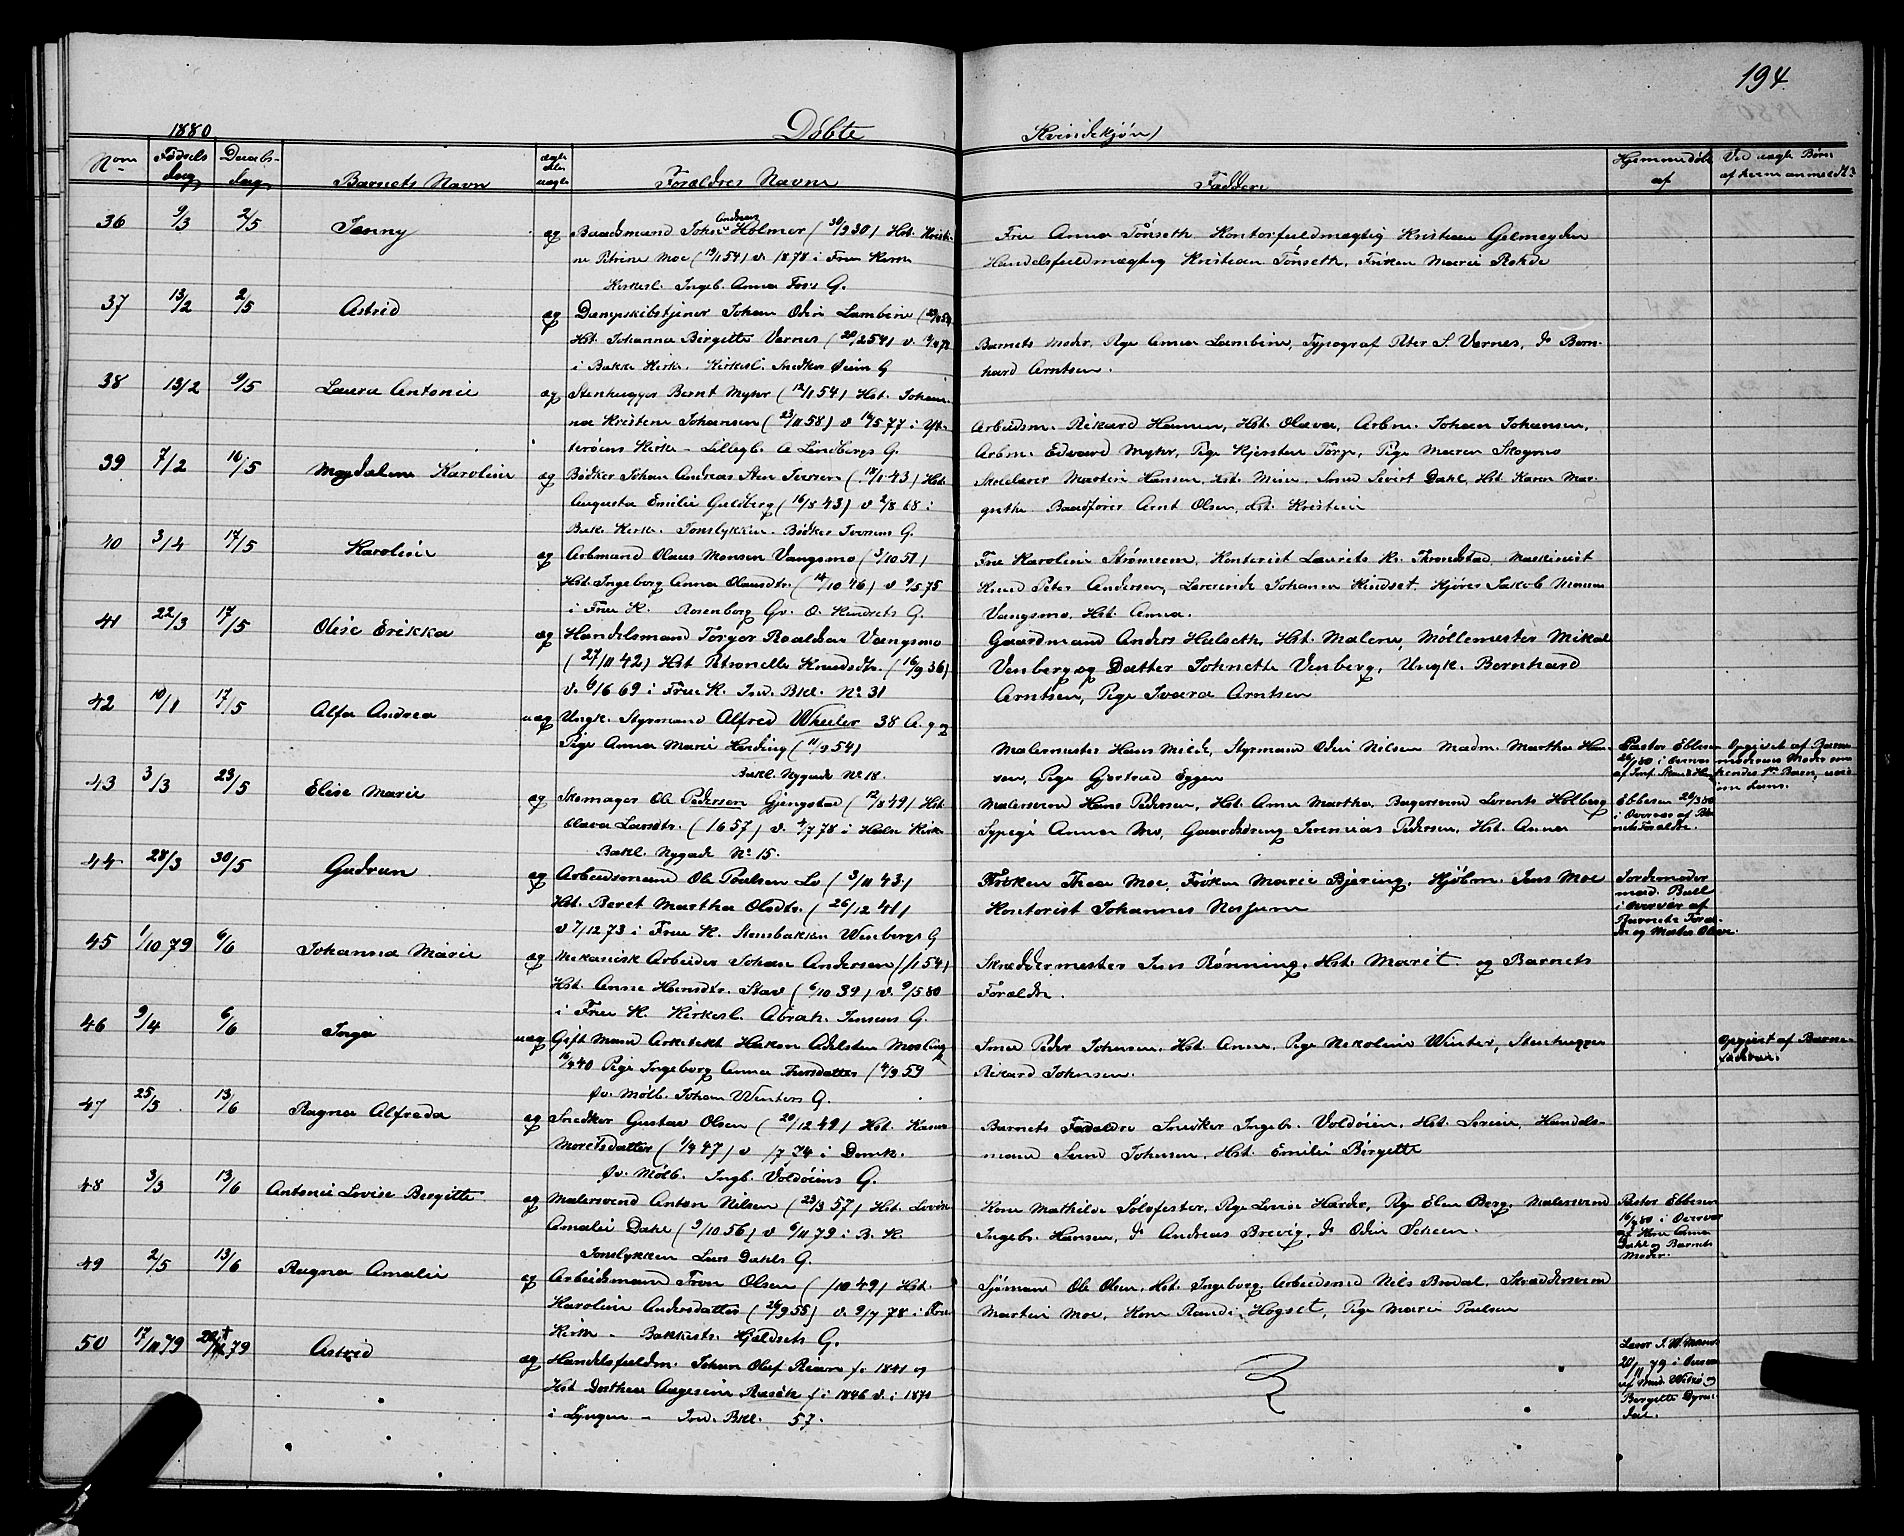 194
1880 Döbte Kvindekjøn
No Fødsels Dag Daabs- Dag Barnets Navn ægte eller uægte Forældres Navne Faddere Hjemmedøbt af Ved uægte Børn
36 9/3 2/5 Jenny æg Baadsmand Johs Andreas Holmer (30/9 30) Hst.
ne Petrine Moe (19/1 54) v. 1878 i Frue Kirke
Kirkesl. Ingeb. Anna Foss G.
Fru Anna Tönseth, Kontorfuldmægtig Kristian Gelmeyden
Handelsfuldmægtig Kristian Tönseth, Frøken Marie Rokde
37 13/2 2/5 Astrid æg Dampskibstjener Johan Odin Lambine
Hst. Johanna Birgitte Vernes (20/2 54) v.
i Bakke Kirke. Kirkesl. Snedker Øien G
Barnets Moder, Pige Anna Lambine, Typograf Peter S. Vernes, do Bern-
hard Arntsen.
38 13/2 9/5 Laura Antonie æg Stenhugger Bernt Myhr (12/1 54) Hst. Johan-
na Kristine Johansen (23/11 58) v 16/5 77 i Yt-
terøens Kirke - Lillegb. A Lundbergs G.
Arbeidsm. Rikard Hansen, Hst. Olava, Arbm. Johan Johansen,
Arbm. Edvard Myhr, Pige Kjersten Torp, Pige Maren Skogmo
39 7/2 16/5 Magdalena Karoline æg Bødker Johan Andreas Sten Iversen (18/1 43) Hst.
Augusta Emilie Guldberg (16/8 43) v 2/8 68 i
Bak. Kirke. Tonslykken - Bødker Iversens G.
Skolelærer Martin Hansen, Hst. Mina, Smed Sivert Dahl, Hst. Karen Mar-
grethe Baadfører Arnt Olsen, Hst. Kristine
40 3/4 17/5 Karoline æg Arbmand Olaus Monsen Vangsmo (3/10 51)
Hst. Ingeborg Anna Olausdtr. (14/10 46) v 9/5 75
i Frue K. Rosenborg Gv. O. Kindsets G.
Fru Karoline Strømsem, Kontorist Laurits K. Trondstad, Maskinist
Knud Peter Andersen, Lærerinde Johanna Kindset, Kjörer Jakob Monsen
Vangsmo, Hst. Anna.
41 22/3 17/5 Olise Erikka æg Handelsmand Torger Roaldsen Vangsmo
(27/11 42) Hst Petronelle Knudsdtr. (16/9 36)
v. 6/1 69 i Frue K. Ind. Bkl. No 31
Gaardmand Anders Halseth, Hst. Malene, Möllemester Mikal
Venberg og Datter Johnette Venberg, Ungk. Bernhard
Arntsen, Pige Ivara Arntsen
42 10/1 17/5 Alfa Andrea uæg Ungk. Styrmand Alfred Wheeler 38 A. og
Pige Anna Marie Harding (11/9 54)
Bakl. Nygade No 18.
Malermester Hans Milde, Styrmand Odin Nilsen Madm. Martha Han-
sen, Pige Gjertrud Eggen
Pastor Ebbesen
Opgivet af Barne-
moderens Moder
43 3/3 23/5 Elise Marie æg Skomager Ole Pedersen Gjengstad (12/8 49) Hst
Olava Larsdtr. (16 57) v. 4/7 78 i Hala Kirke
Bakl. Nygade No 15.
Malersvend Hans Pedersen, Hst. Anne Martha, Bagersvend Lorents Holberg
Sypige Anna Mo, Gaardsdreng Jeremias Pedersen, Hst. Anna
Ebbesen 26/3 80
i Overvær af Bar-
nets Forældre.
44 28/3 30/5 Gudrun æg Arbeidsmand Ole Poulsen Lo (3/11 43)
Hst. Beret Martha Olsdtr. (26/12 41)
v 7/12 73 i Frue K. Stensbakken Winbergs G
Frøken Thea Moe, Frøken Marie Bjering, Kjöbm. Jens Moe
Kontorist Johannes Nossum
Jordemoder
mad. Bull
i Overvær af
Barnets Foræl-
dre og Maler Olsen.
45 1/10 79 6/6 Johanna Marie æg Mekanisk Arbeider Johan Andersen (/1 54)
Hst. Anne Hansdtr. Stav (6/10 39) v. 9/5 80
i Frue K. Kirkesl. Abrah. Jensens G.
Skræddermester Jens Rønning, Hst. Marit og Barnets
Forældre.
46 9/4 6/6 Inga uæg Gift Mand Arkitekt Hakon Adelsten Mosling
16/9 40 Pige Ingeborg Anna Thorsdatter (4/9 59
Øv. Mølb. Johan Winters G.
Smed Peder Johnsen, Hst. Anne, Pige Nikoline Winter, Stenhugger
Rikard Johnsen.
Opgivet af Barne-
faderen.
47 25/3 13/6 Ragna Alfreda æg Snedker Gustav Olsen (20/12 49) Hst. Karen
Moretsdatter (1/9 47) v /7 74 i Domk.
Øv. Mølb. Ingb. Voldöiens G.
Barnets Forældre Snedker Ingeb. Voldöien, Hst. Serine, Handels-
mand Svend Johnsen, Hst. Emilie Birgette
48 3/3 13/6 Antonie Lovise Bergitte æg Malersvend Anton Nilsen (23/3 57) Hst Lovise
Amalie Dahl (3/10 56) v 6/11 79 i B. K.
Tonslykken Lars Dahls G.
Kone Mathilde Solofester, Pige Lovise Harder, Pige Elen Berg, Malersvend
Ingebr. Hansen, do Andreas Brevig, do Odin Scheen.
Pastor Ebbesen
i Overvær
af Kone Anna
Dahl og Barnets
Moder.
49 2/5 13/6 Ragna Amalie æg Arbeidsmand Tron Olsen (/10 49) Hst.
Karoline Andersdatter (26/9 55) v. 9/7 78 i Frue
Kirke - Bakkestr. Gjeldsets G.
Sjömand Ole Olsen, Hst. Ingeborg, Arbeidsmd Nils Brudal, Skræddersvend
Martin Moe, Kone Randi Hogset, Pige Marie Poulsen
50 17/11 79 20/11 79 Astrid æg Handelsfuldm. Johan Oluf Reiam f. 1841 og
Hst. Dorthea Augesine f i 1846 v. i 1871
i Lyngen - Ind. Bkl. 57.
20/11 79 i Overvær